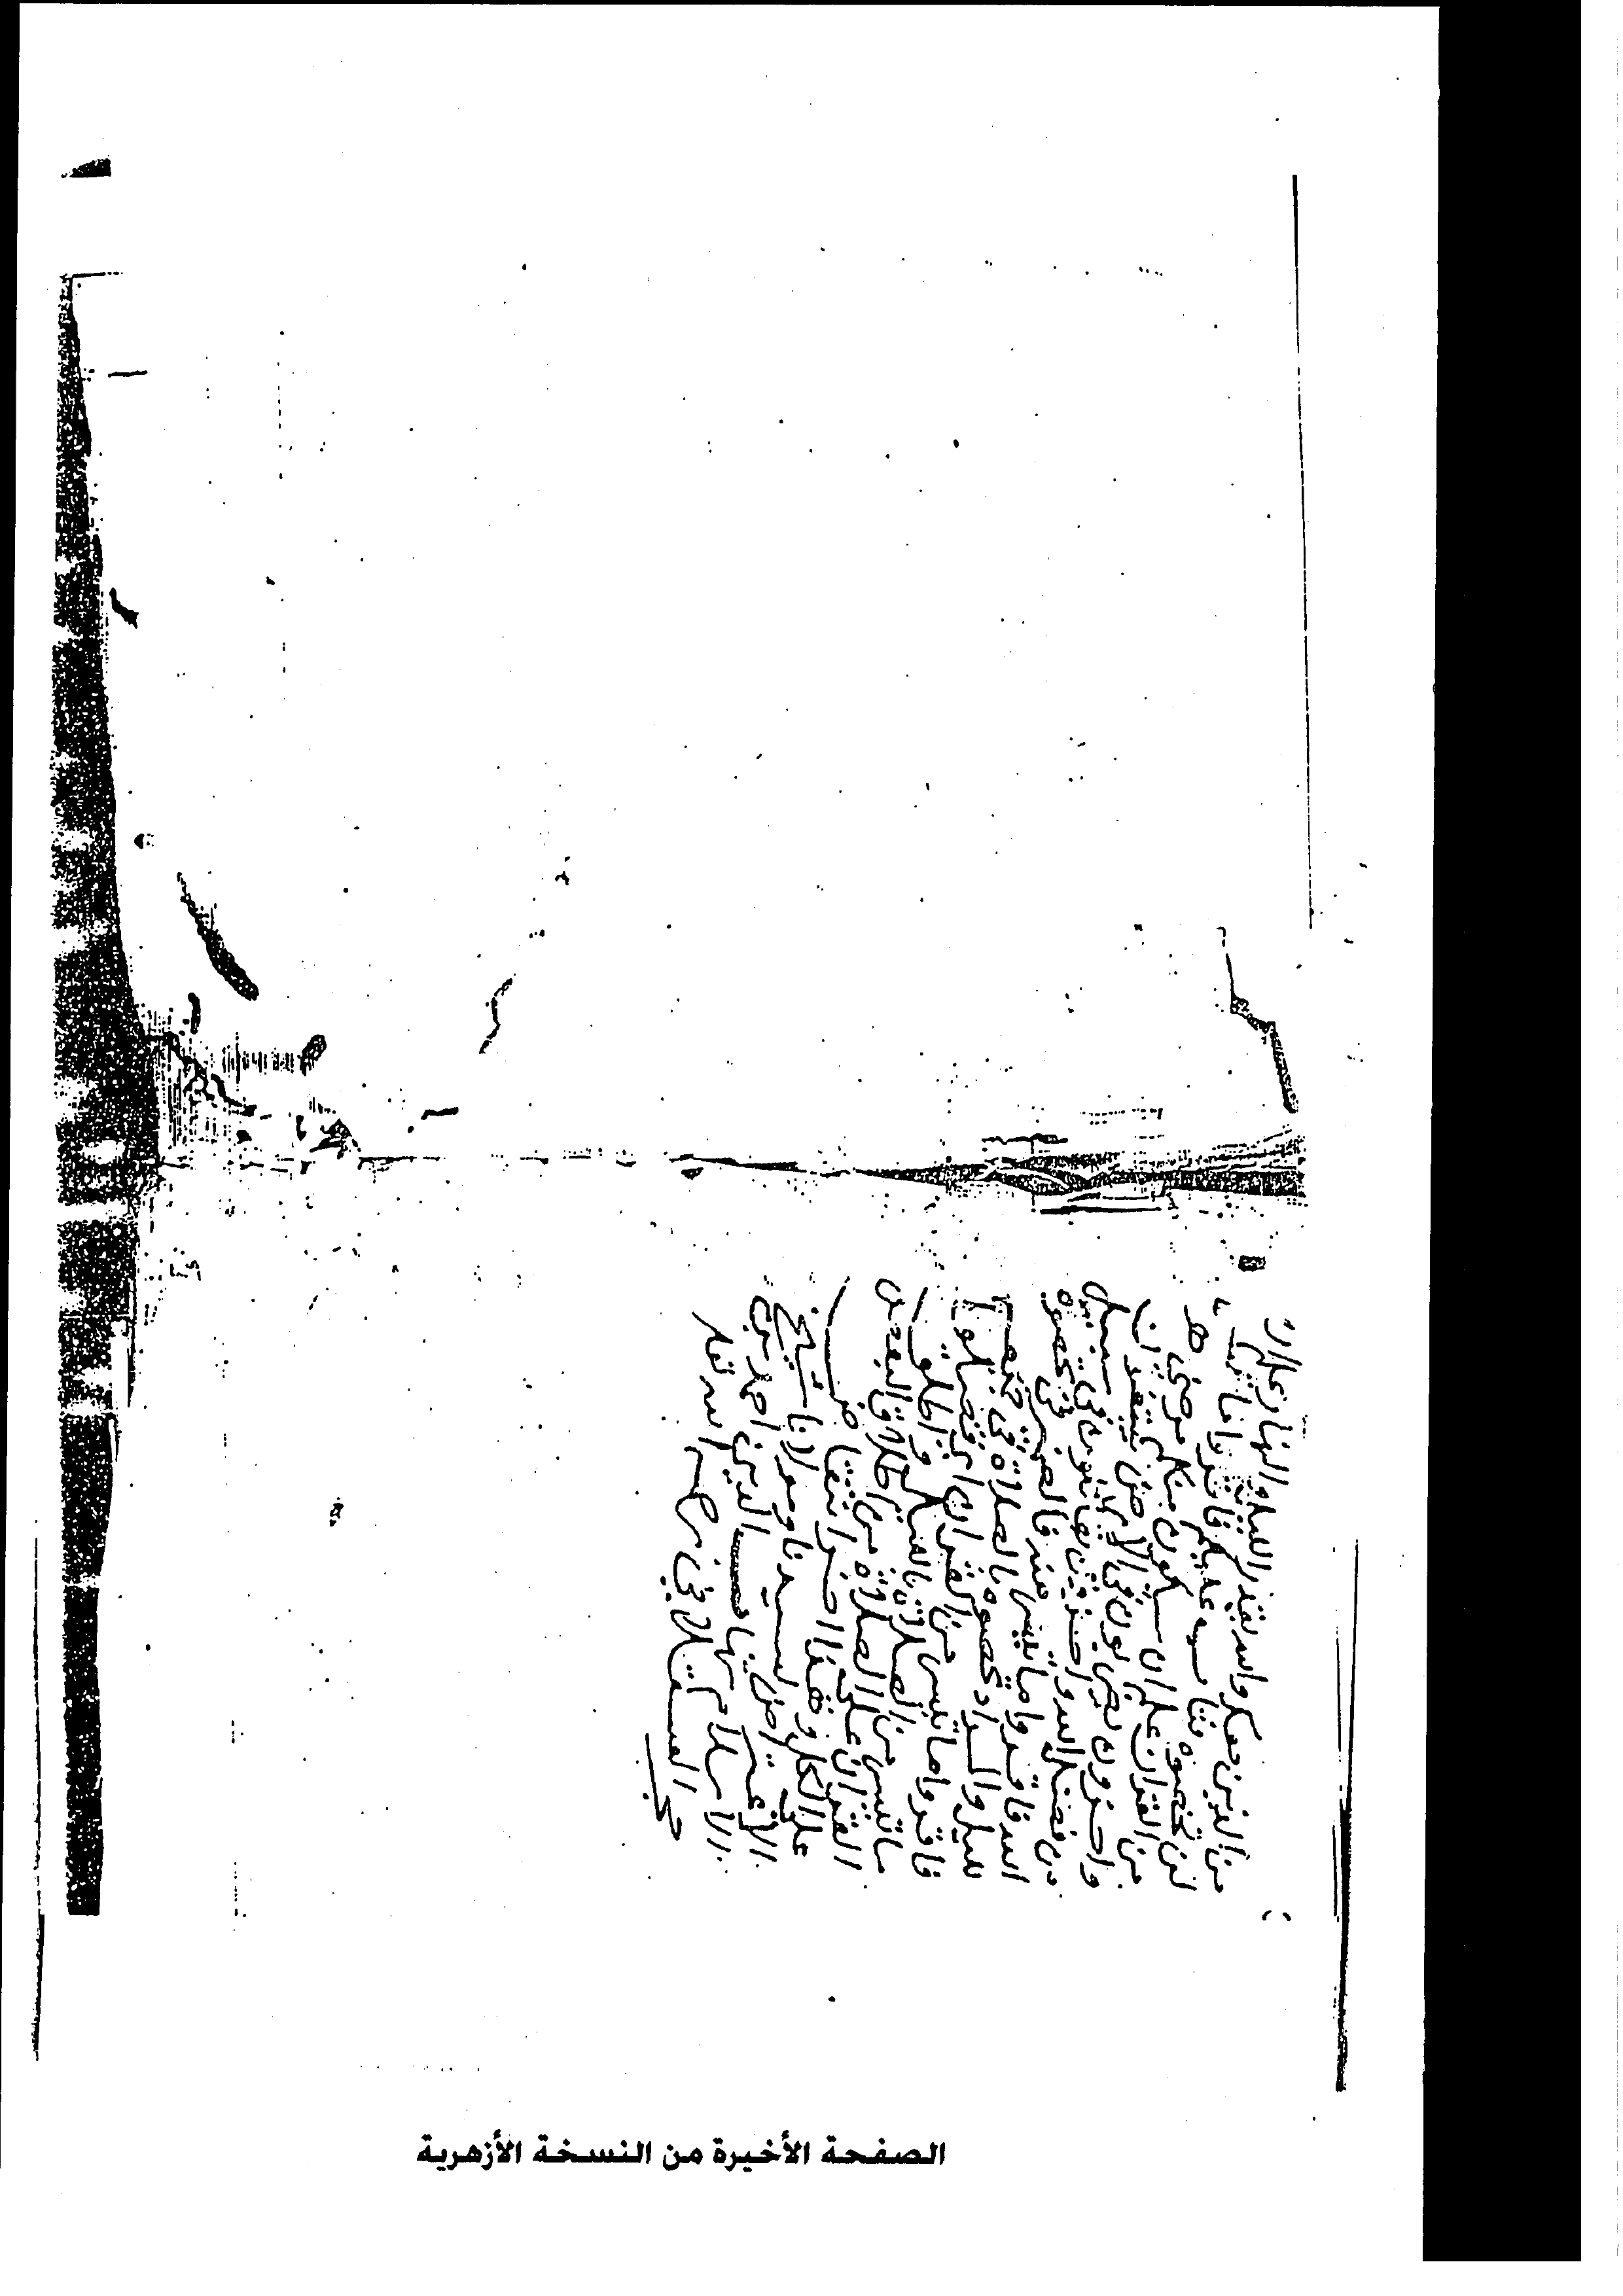 من الذين معك والله يقدر الليل والنهار علم ان
لن تحصوه فتاب عليكم فاقروا ما تيسر
من القران علم ان سيكون منكم مرضى
واخرون يضربون في الارض يبتغون
من فضل الله واخرون يقاتلون في سبيل
الله فاقروا ما تيسر منه فالضمير في تحصوه
لليل والمراد تحصوه بالصلاة فيه
فاقروا ما تيسر من القران اي فصلوا
ما تيسر من الصلاة بالليل واطلق
القران على الصلاة من اطلاق البعض
على الكل وهذا اخر
الاعتراض لسيدنا ومولانا شيخ
الاسلام شهاب الدين احمد بن
حجر العسقلاني رحمه الله تعالى
الصفحة الأخيرة من النسخة الأزهرية